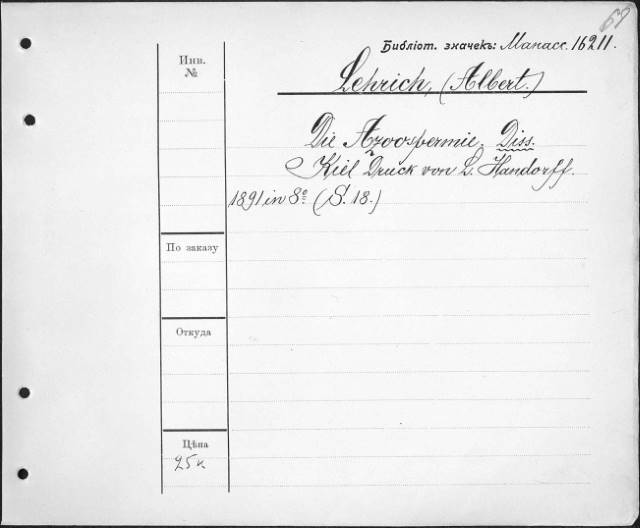 63
Библіот. значекъ: Манасс. 16211.
Инв.
№
Lehrich, (Albert.)
Die Azoospermie. Diss.
Kiel Druck von L. Handorff.
1891 in 8º. (S. 18.)
По заказу
Откуда
Цѣна
25 к